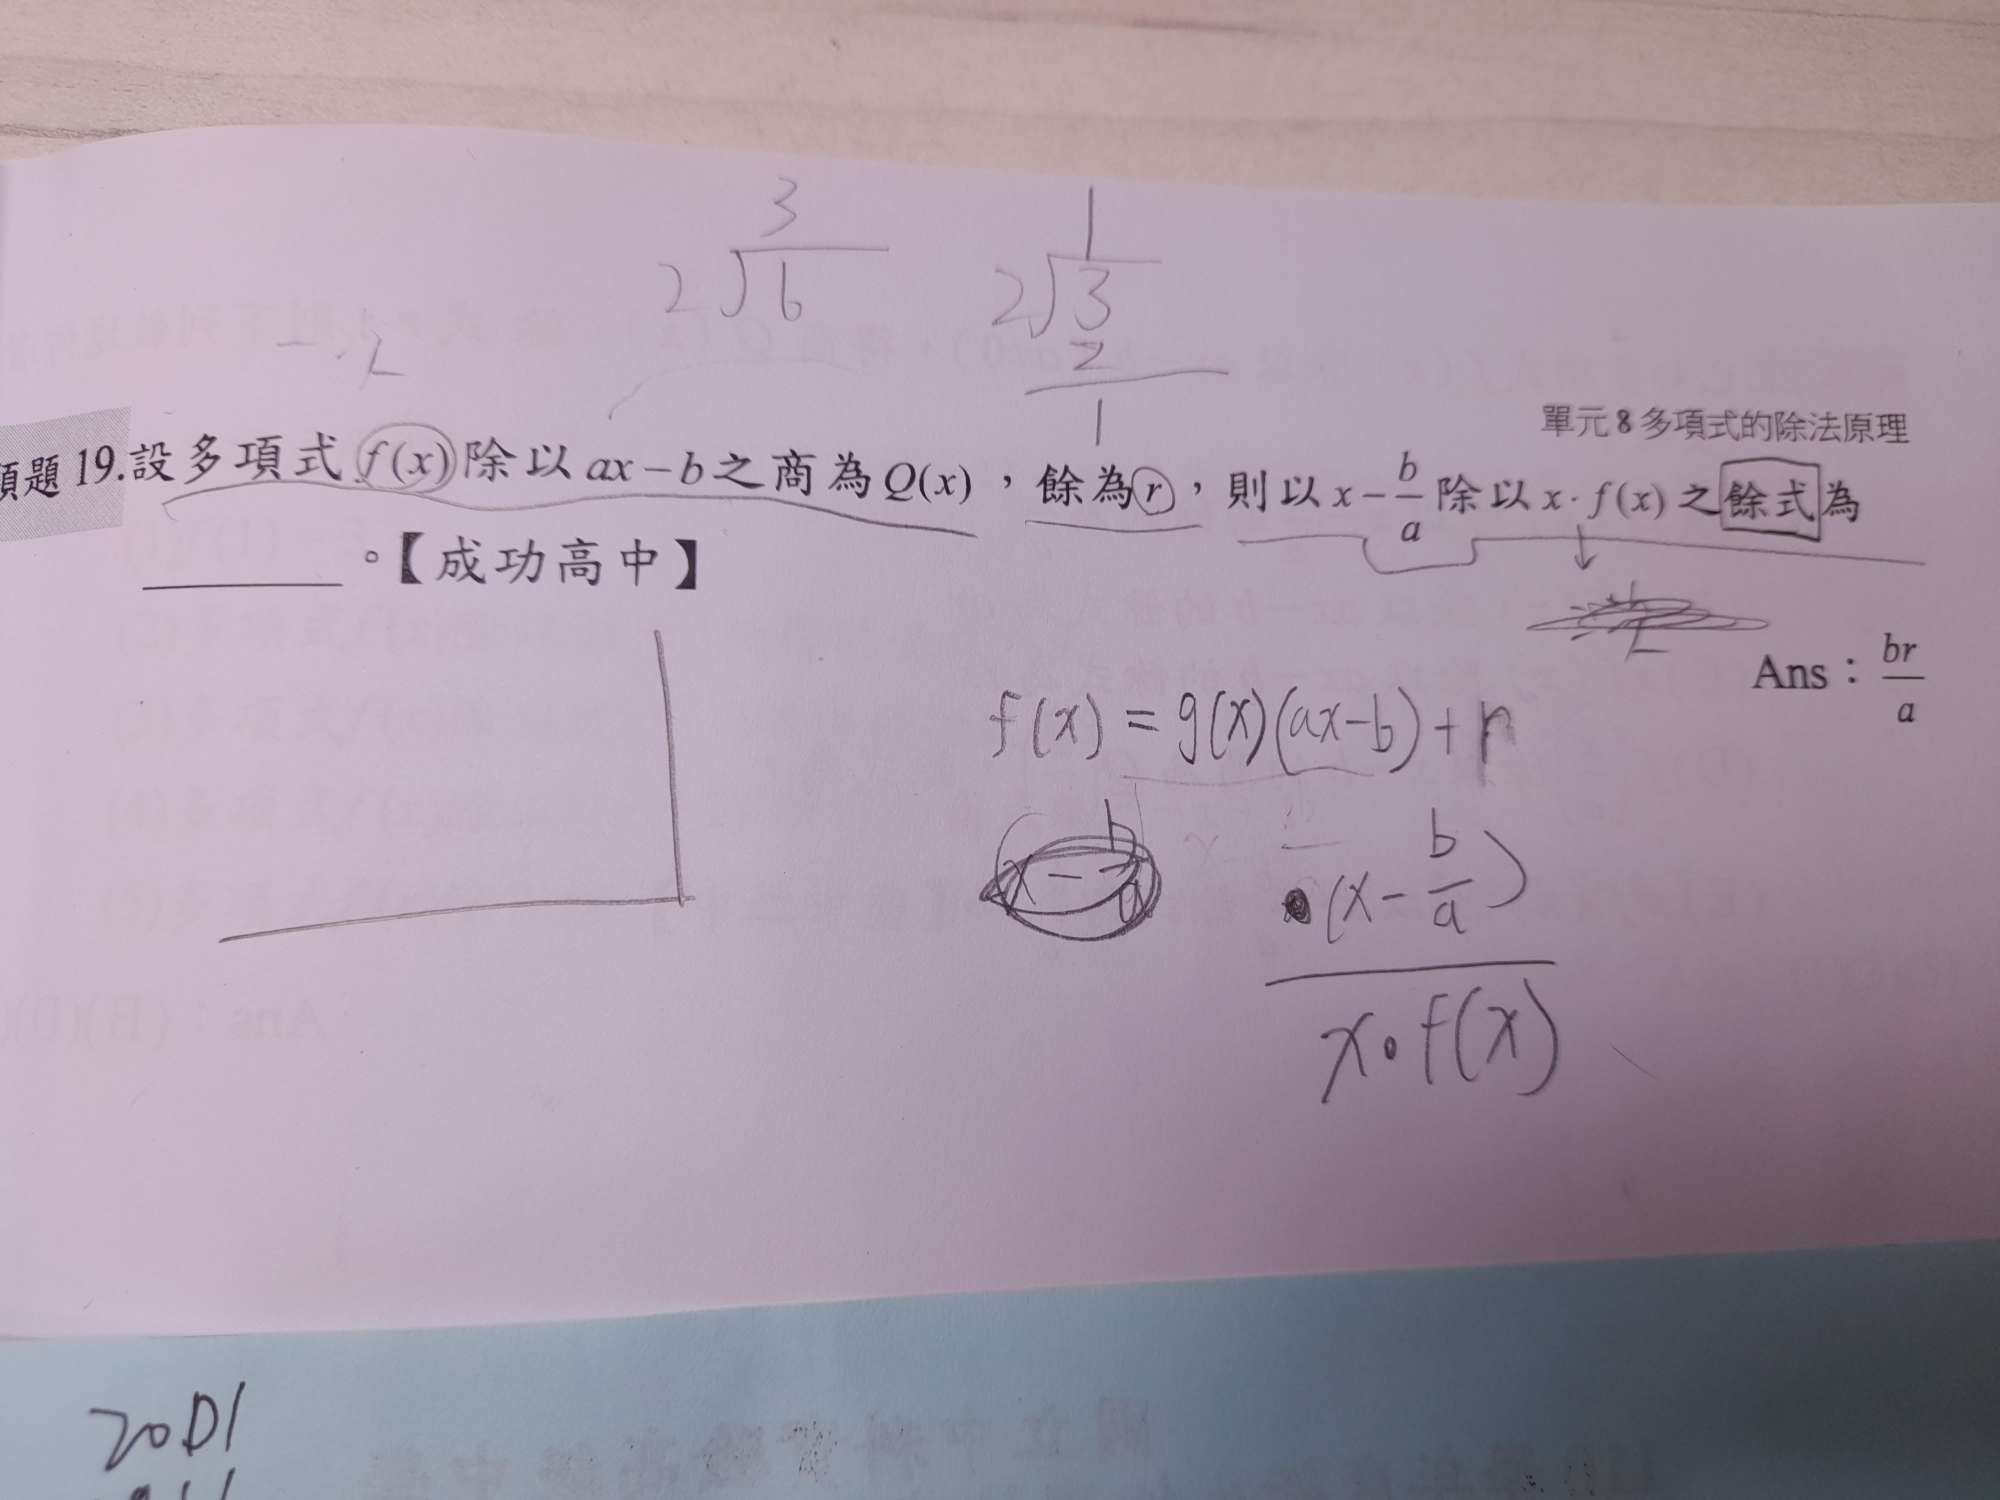 3
2 6
1
2 3
2
1
單元8多項式的除法原理
題19.設多項式f(x)除以ax-b之商為Q(x),餘為r,則以x-b/a除以x·f(x)之餘式為
______。【成功高中】
Ans:br/a
f(x)=g(x)(ax-b)+r
x-b/a
(x-b/a)
x·f(x)